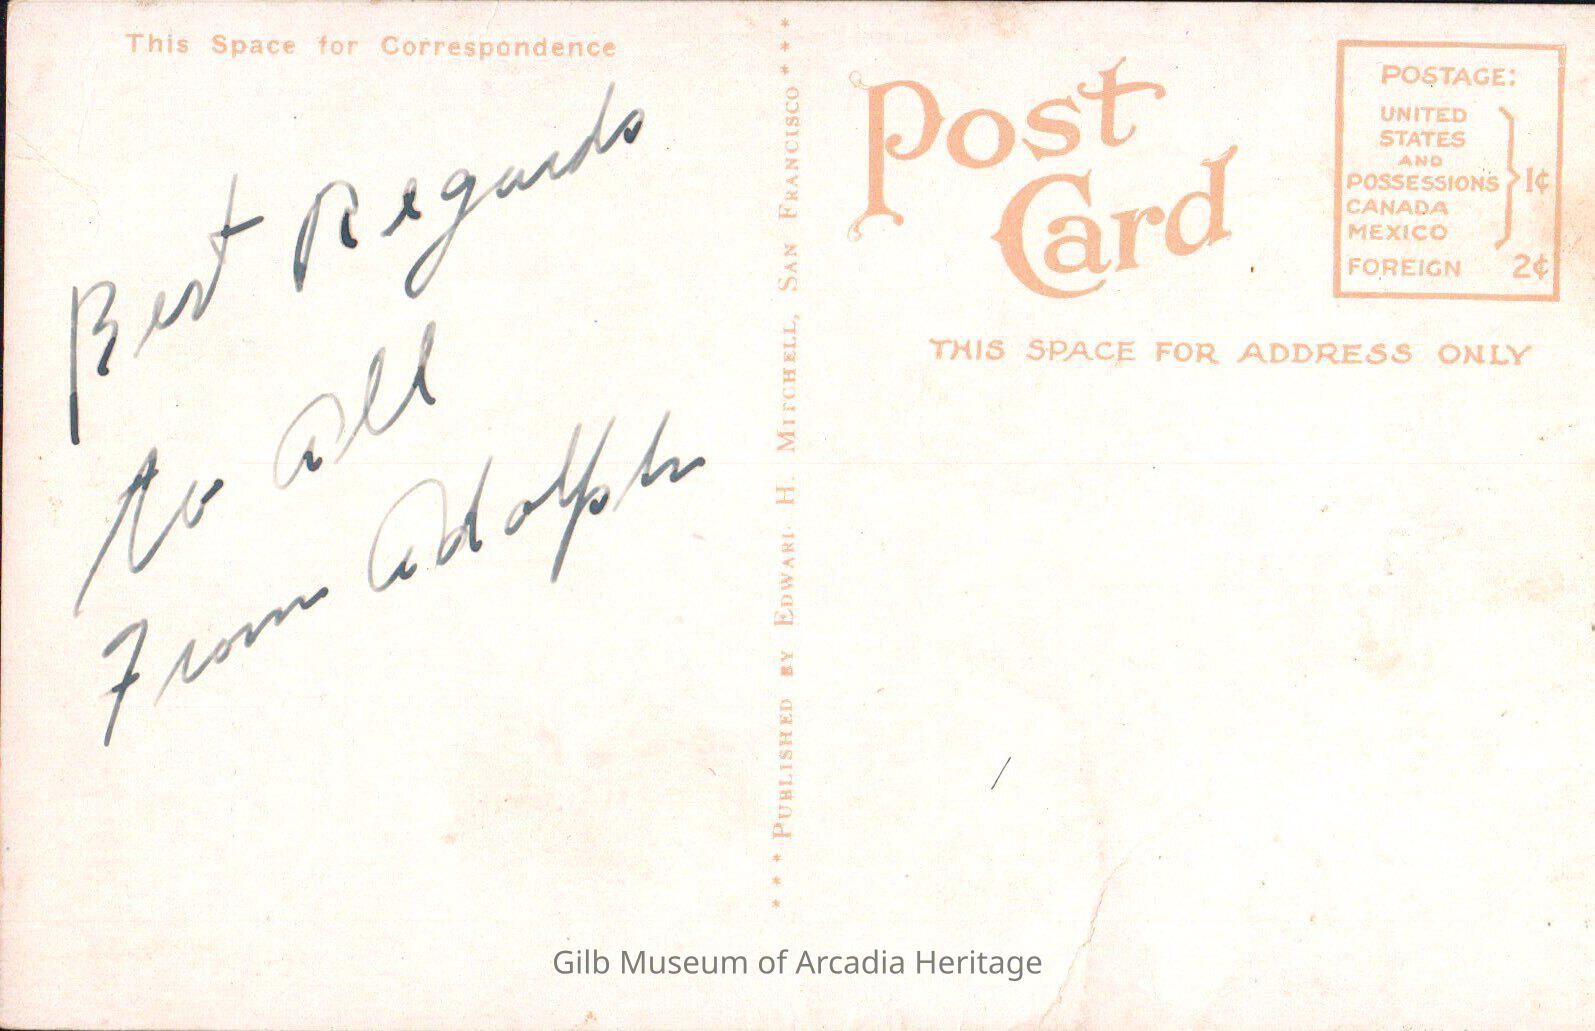 This Space for Correspondence
Best Regards
to all
From Adolph
* * * PUBLISHED BY EDWARD H. MITCHELL, SAN FRANCISCO * * *
Post
Card
POSTAGE:
UNITED
STATES
AND
POSSESSIONS
CANADA
MEXICO
1¢
FOREIGN 2¢
THIS SPACE FOR ADDRESS ONLY
Gilb Museum of Arcadia Heritage